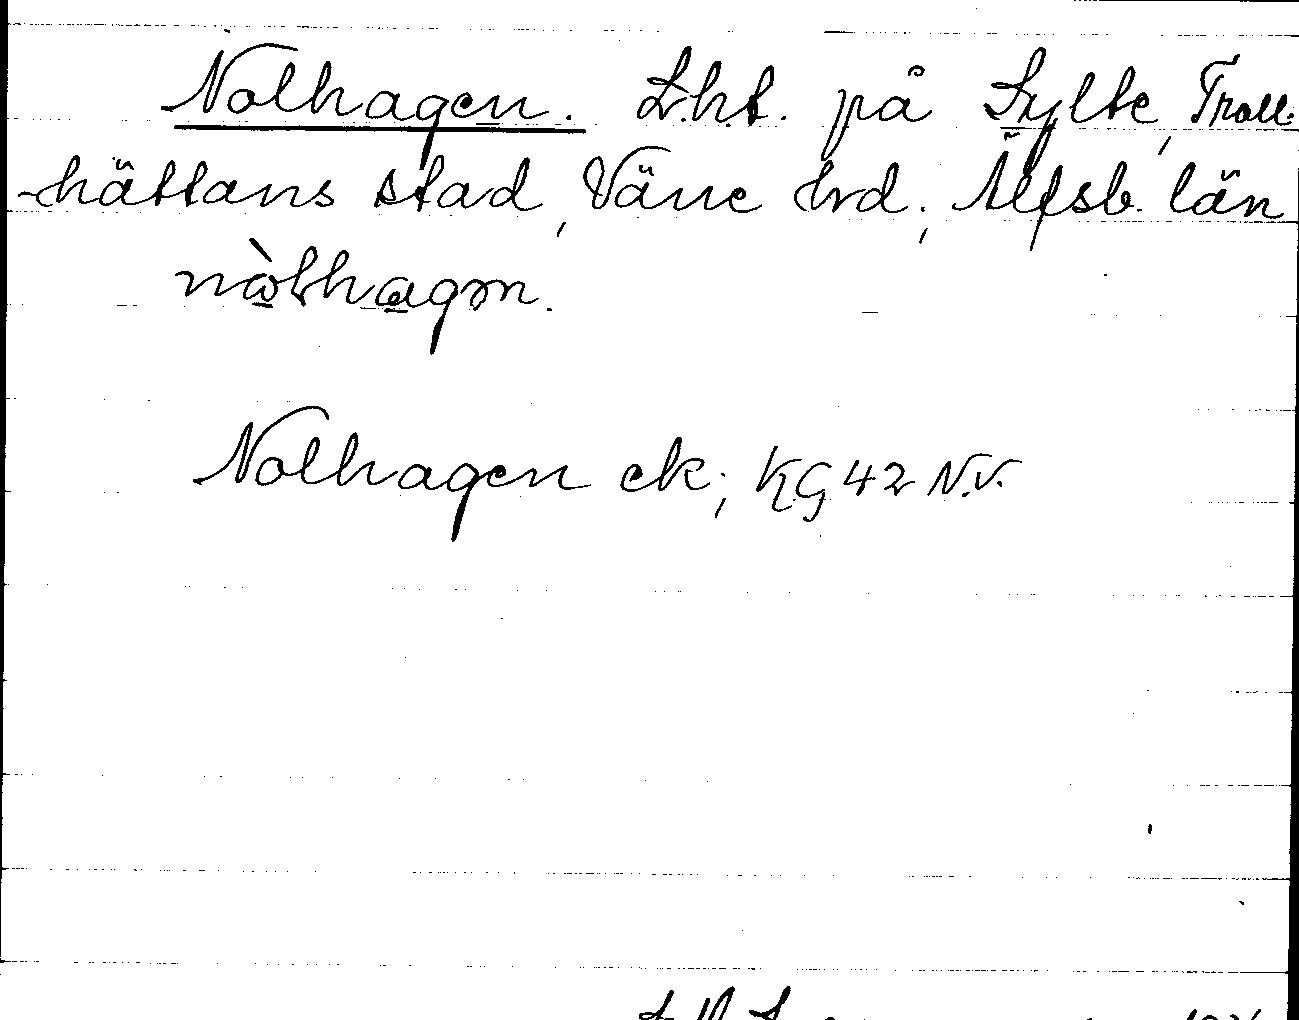 Nolhagen. Lht. på Sylte, Troll-
hättans stad, Väne hd; Älfsb. län
Nolhagen ek; KG 42 N.V.